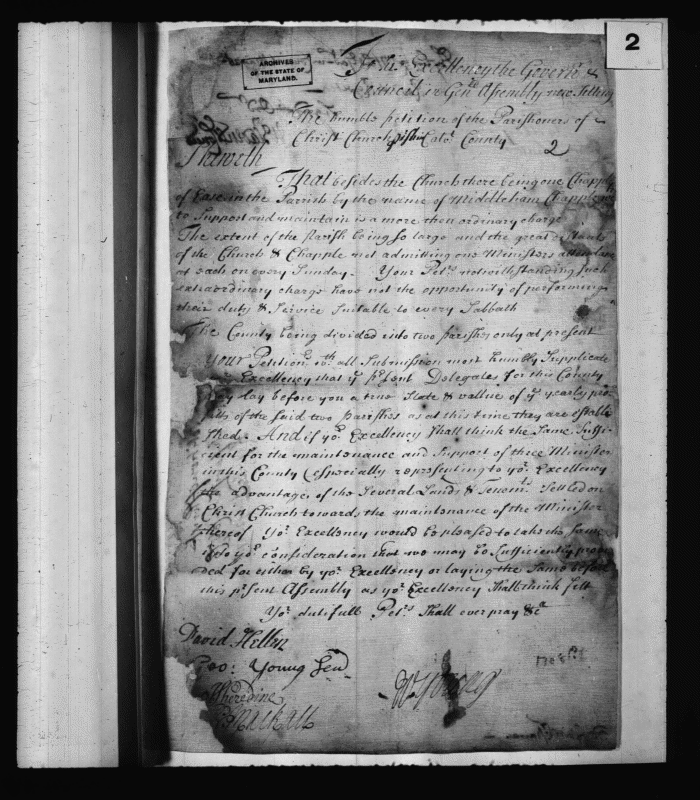 2
ARCHIVES
OF THE STATE OF
MARYLAND.
To his Excellency the Govern.r &
Councel in Gen.ll Assembly now Sitting
The humble petition of the Parishoners of
Christ Church Calv.t County
2
Sheweth
That besides the Church there being one Chapple
of Ease in the Parrish by the name of Middleham Chapple
to Support and maintain is a more then ordinary charge
The extent of the Parish being so large and the great distance
of the Church & Chapple not admitting one Ministers attendance
at each on every Sunday. Your Pet.rs notwithstanding such
extraordinary charge have not the opportunity of performing
their duty & Service Suitable to every Sabbath
The County being divided into two parishes only at present
Your Petition.rs w.th all Submission most humbly Supplicate
Excellency that y.e p.rsent Delegates for this County
may lay before you a true State & vallue of y.e yearly
of the said two parishes as at this time they are estable
shed. And if yo.r Excellency Shall think the Same Suffi-
cient for the maintenance and Support of three Minister
in this County (especially representing to yo.r Excellency
the advantages of the Several Lands & Tenem.ts Setled on
Christ Church towards the maintenance of the Minister
thereof yo.r Excellency would be pleased to take the same
into yo.r consideration that we may be Sufficiently provi
ded for either by yo.r Excellency or laying the Same before
this p.rsent Assembly as yo.r Excellency Shall think fitt
Yo.r dutifull Pet.rs Shall ever pray &c.a
David Hellen
Geo: Young Sen.r
W Young